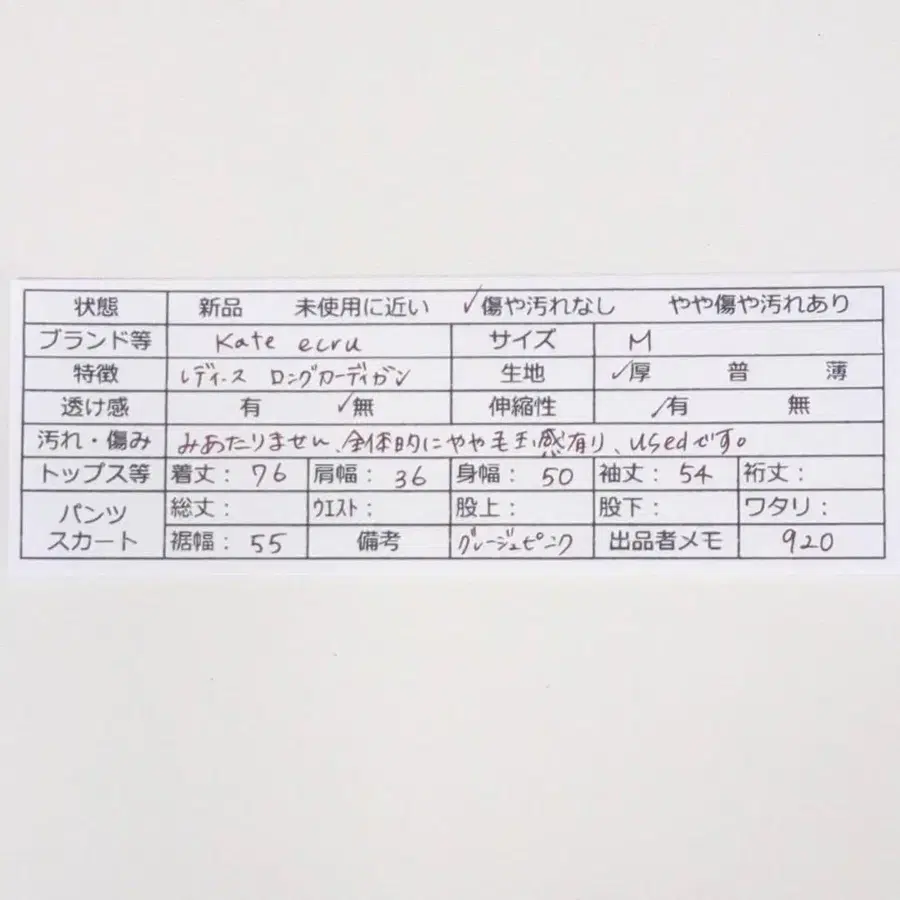 状態 新品 未使用に近い ✓傷や汚れなし やや傷や汚れあり
ブランド等 Kate ecru サイズ M
特徴 レディース ロングカーディガン 生地 ✓厚 普 薄
透け感 有 ✓無 伸縮性 ✓有 無
汚れ・傷み みあたりません、全体的にやや毛玉感有り、usedです。
トップス等 着丈: 76 肩幅: 36 身幅: 50 袖丈: 54 裄丈:
パンツ スカート 総丈: ウエスト: 股上: 股下: ワタリ:
裾幅: 55 備考 グレージュピンク 出品者メモ 920